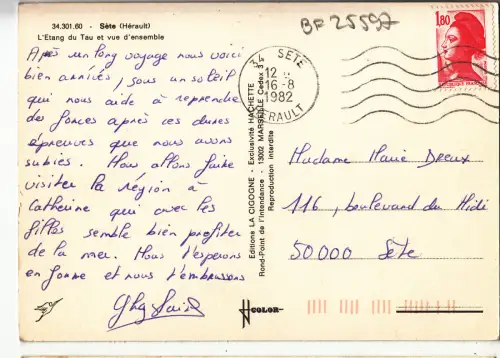 34.301.60 - Sète (Hérault)
L'Etang du Tau et vue d'ensemble
BF 25597
Après un long voyage nous voici
bien arrivés, sous un soleil
qui nous aide à reprendre
des forces après ces dures
épreuves que nous avons
subies. Nous allons faire
visiter la région à
Catherine qui avec les
filles semble bien profiter
de la mer. Nous t'espérons
en forme et nous t'embrassons
Ghyslaine
Editions LA CIGOGNE - Exclusivité HACHETTE
Rond-Point de l'Intendance - 13002 MARSEILLE Cedex 3
Reproduction interdite
COLOR
34 SETE
12
16-8
1982
HERAULT
1,80
Madame Marie Dreux
116, boulevard du Midi
50.000 Sète